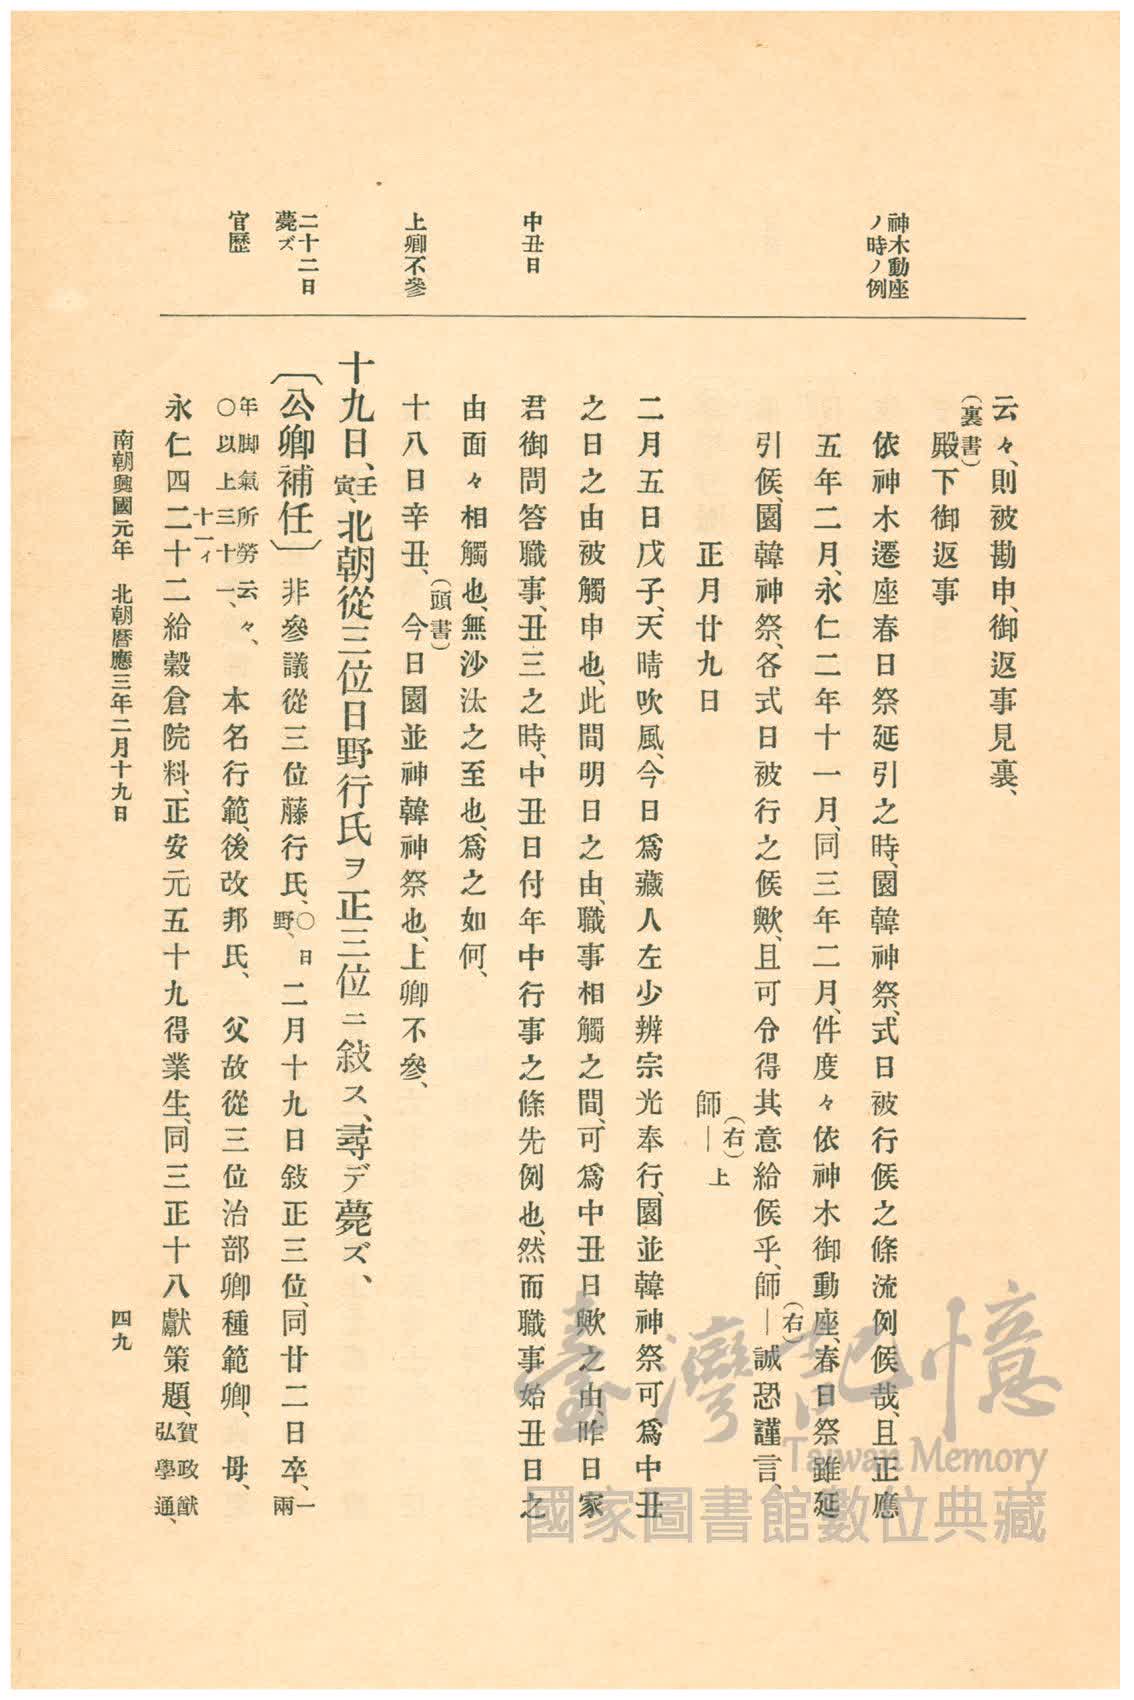 神木動座
ノ時ノ例
中丑日
上卿不參
二十二日
薨ズ
官歷
云々、則被勘申、御返事見裏、
(裏書)
殿下御返事
依神木遷座春日祭延引之時、園韓神祭、式日被行候之條流例候哉、且正應
五年二月、永仁二年十一月、同三年二月、件度々依神木御動座、春日祭雖延
引候、園韓神祭、各式日被行之候歟、且可令得其意給候乎、師(右)―誠恐謹言、
正月廿九日
師(右)―上
二月五日戊子、天晴吹風、今日爲藏人左少辨宗光奉行、園並韓神祭可爲中丑
之日之由被觸申也、此間明日之由、職事相觸之間、可爲中丑日歟之由昨日家
君御問答職事、丑三之時、中丑日付年中行事之條先例也、然而職事始丑日之
由面々相觸也、無沙汰之至也、爲之如何、
十八日辛丑、(頭書)今日園並神韓神祭也、上卿不參、
十九日、壬寅、北朝從三位日野行氏ヲ正三位ニ敍ス、尋デ薨ズ、
〔公卿補任〕 非參議從三位藤行氏、〇日野、 二月十九日敍正三位、同廿二日卒、一兩
年脚氣所勞云々、〇以上三十一、十一ィ 本名行範、後改邦氏、 父故從三位治部卿種範卿、 母、
永仁四二十二給穀倉院料、正安元五十九得業生、同三正十八獻策題、賀政猷弘學通、
南朝興國元年 北朝曆應三年二月十九日
四九
臺灣記憶
Taiwan Memory
國家圖書館數位典藏